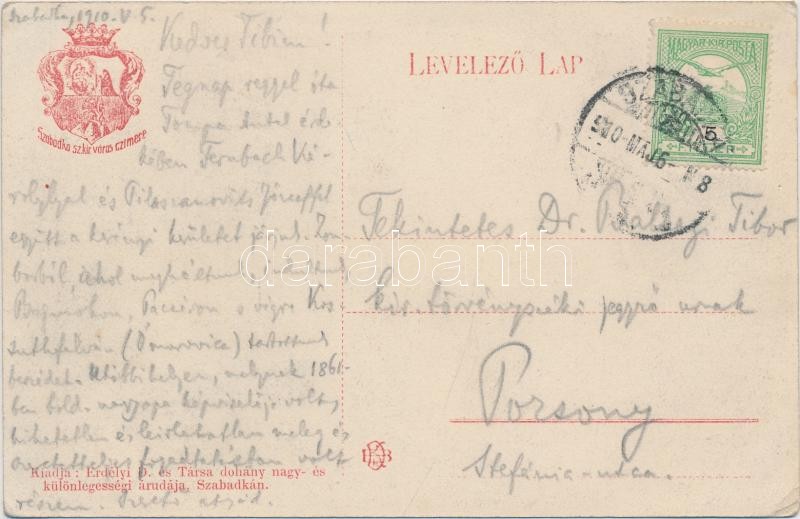 Szabadka, 1910. V. 5.
Kedves Tibim!
Tegnap reggel óta
Tompa Antal érde-
kében Fernbach Ká-
rolylyal és Piloszanovits Józseffel
együtt a kerületet Zom-
borból, ahol
Bajmokon, Pacséron s végre Kos-
suthfalván (Ómorovica) tartottunk
beszédet. Utóbbi helyen, melynek 1861-
ben bold. nagyapa képviselője volt,
hihetetlen és leírhatatlan meleg és
fogadtatásban volt
részem. Szerető atyád.
Szabadka sz. kir. város czimere
LEVELEZŐ LAP
MAGYAR KIR. POSTA
5
FILLÉR
SZABADKA
910 MAJ 6 N 8
Tekintetes Dr. Tibor
kir. törvényszéki jegyző urnak
Pozsony
Stefánia-utca.
Kiadja: Erdélyi D. és Társa dohány nagy- és
különlegességi árudája, Szabadkán.
darabanth